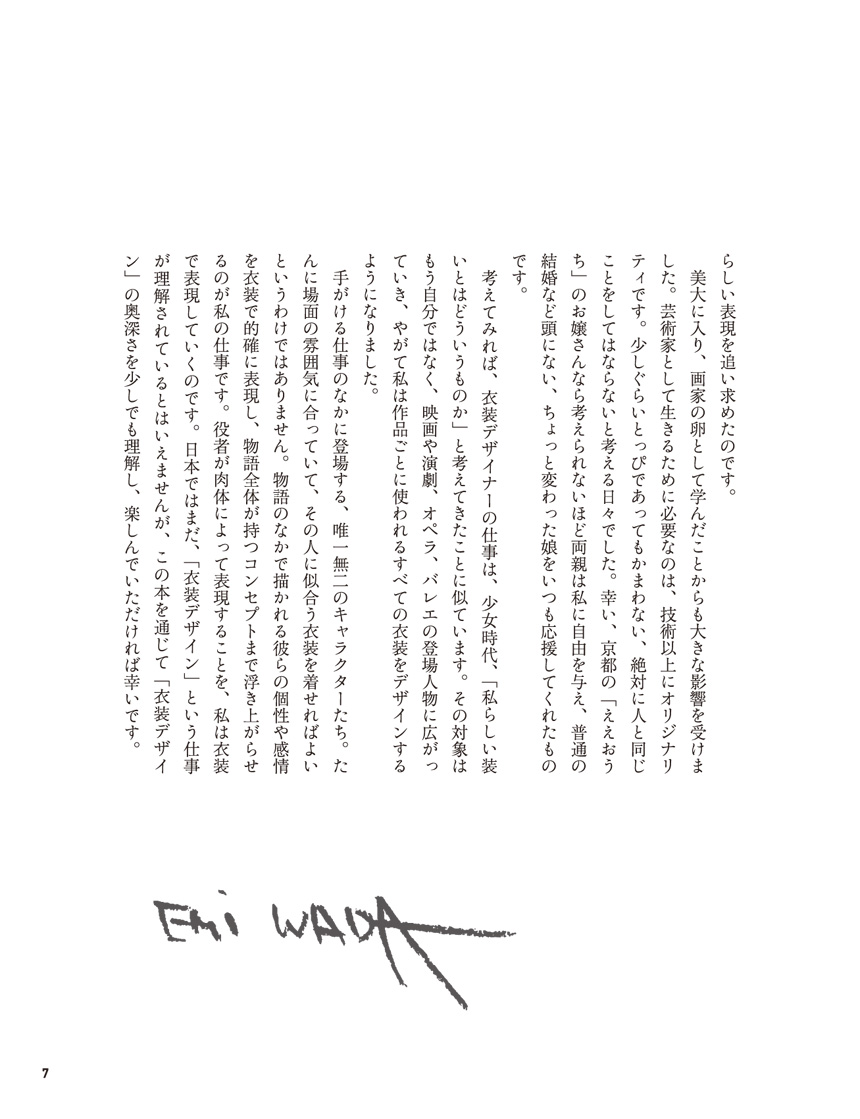 らしい表現を追い求めたのです。
　美大に入り、画家の卵として学んだことからも大きな影響を受けま
した。芸術家として生きるために必要なのは、技術以上にオリジナリ
ティです。少しぐらいとっぴであってもかまわない、絶対に人と同じ
ことをしてはならないと考える日々でした。幸い、京都の「ええおう
ち」のお嬢さんなら考えられないほど両親は私に自由を与え、普通の
結婚など頭にない、ちょっと変わった娘をいつも応援してくれたもの
です。
　考えてみれば、衣装デザイナーの仕事は、少女時代、「私らしい装
いとはどういうものか」と考えてきたことに似ています。その対象は
もう自分ではなく、映画や演劇、オペラ、バレエの登場人物に広がっ
ていき、やがて私は作品ごとに使われるすべての衣装をデザインする
ようになりました。
　手がける仕事のなかに登場する、唯一無二のキャラクターたち。た
んに場面の雰囲気に合っていて、その人に似合う衣装を着せればよい
というわけではありません。物語のなかで描かれる彼らの個性や感情
を衣装で的確に表現し、物語全体が持つコンセプトまで浮き上がらせ
るのが私の仕事です。役者が肉体によって表現することを、私は衣装
で表現していくのです。日本ではまだ、「衣装デザイン」という仕事
が理解されているとはいえませんが、この本を通じて「衣装デザイ
ン」の奥深さを少しでも理解し、楽しんでいただければ幸いです。
EMi WADA
7